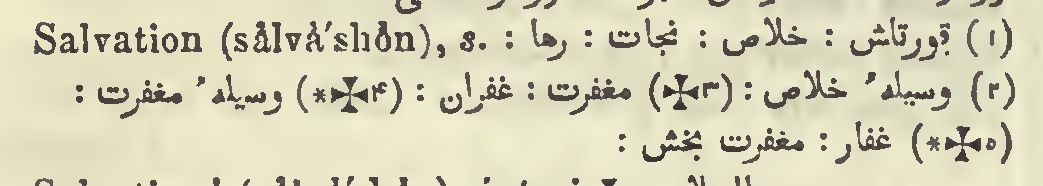 Salvation (sålvà′shŏn), s. : (۱) قورتاش : خلاص : نجات : رها :
(۲) وسیلهٔ خلاص : (۳✠) مغفرت : غفران : (۴✠*) وسیلهٔ مغفرت :
(۵✠*) غفار : مغفرت بخش :